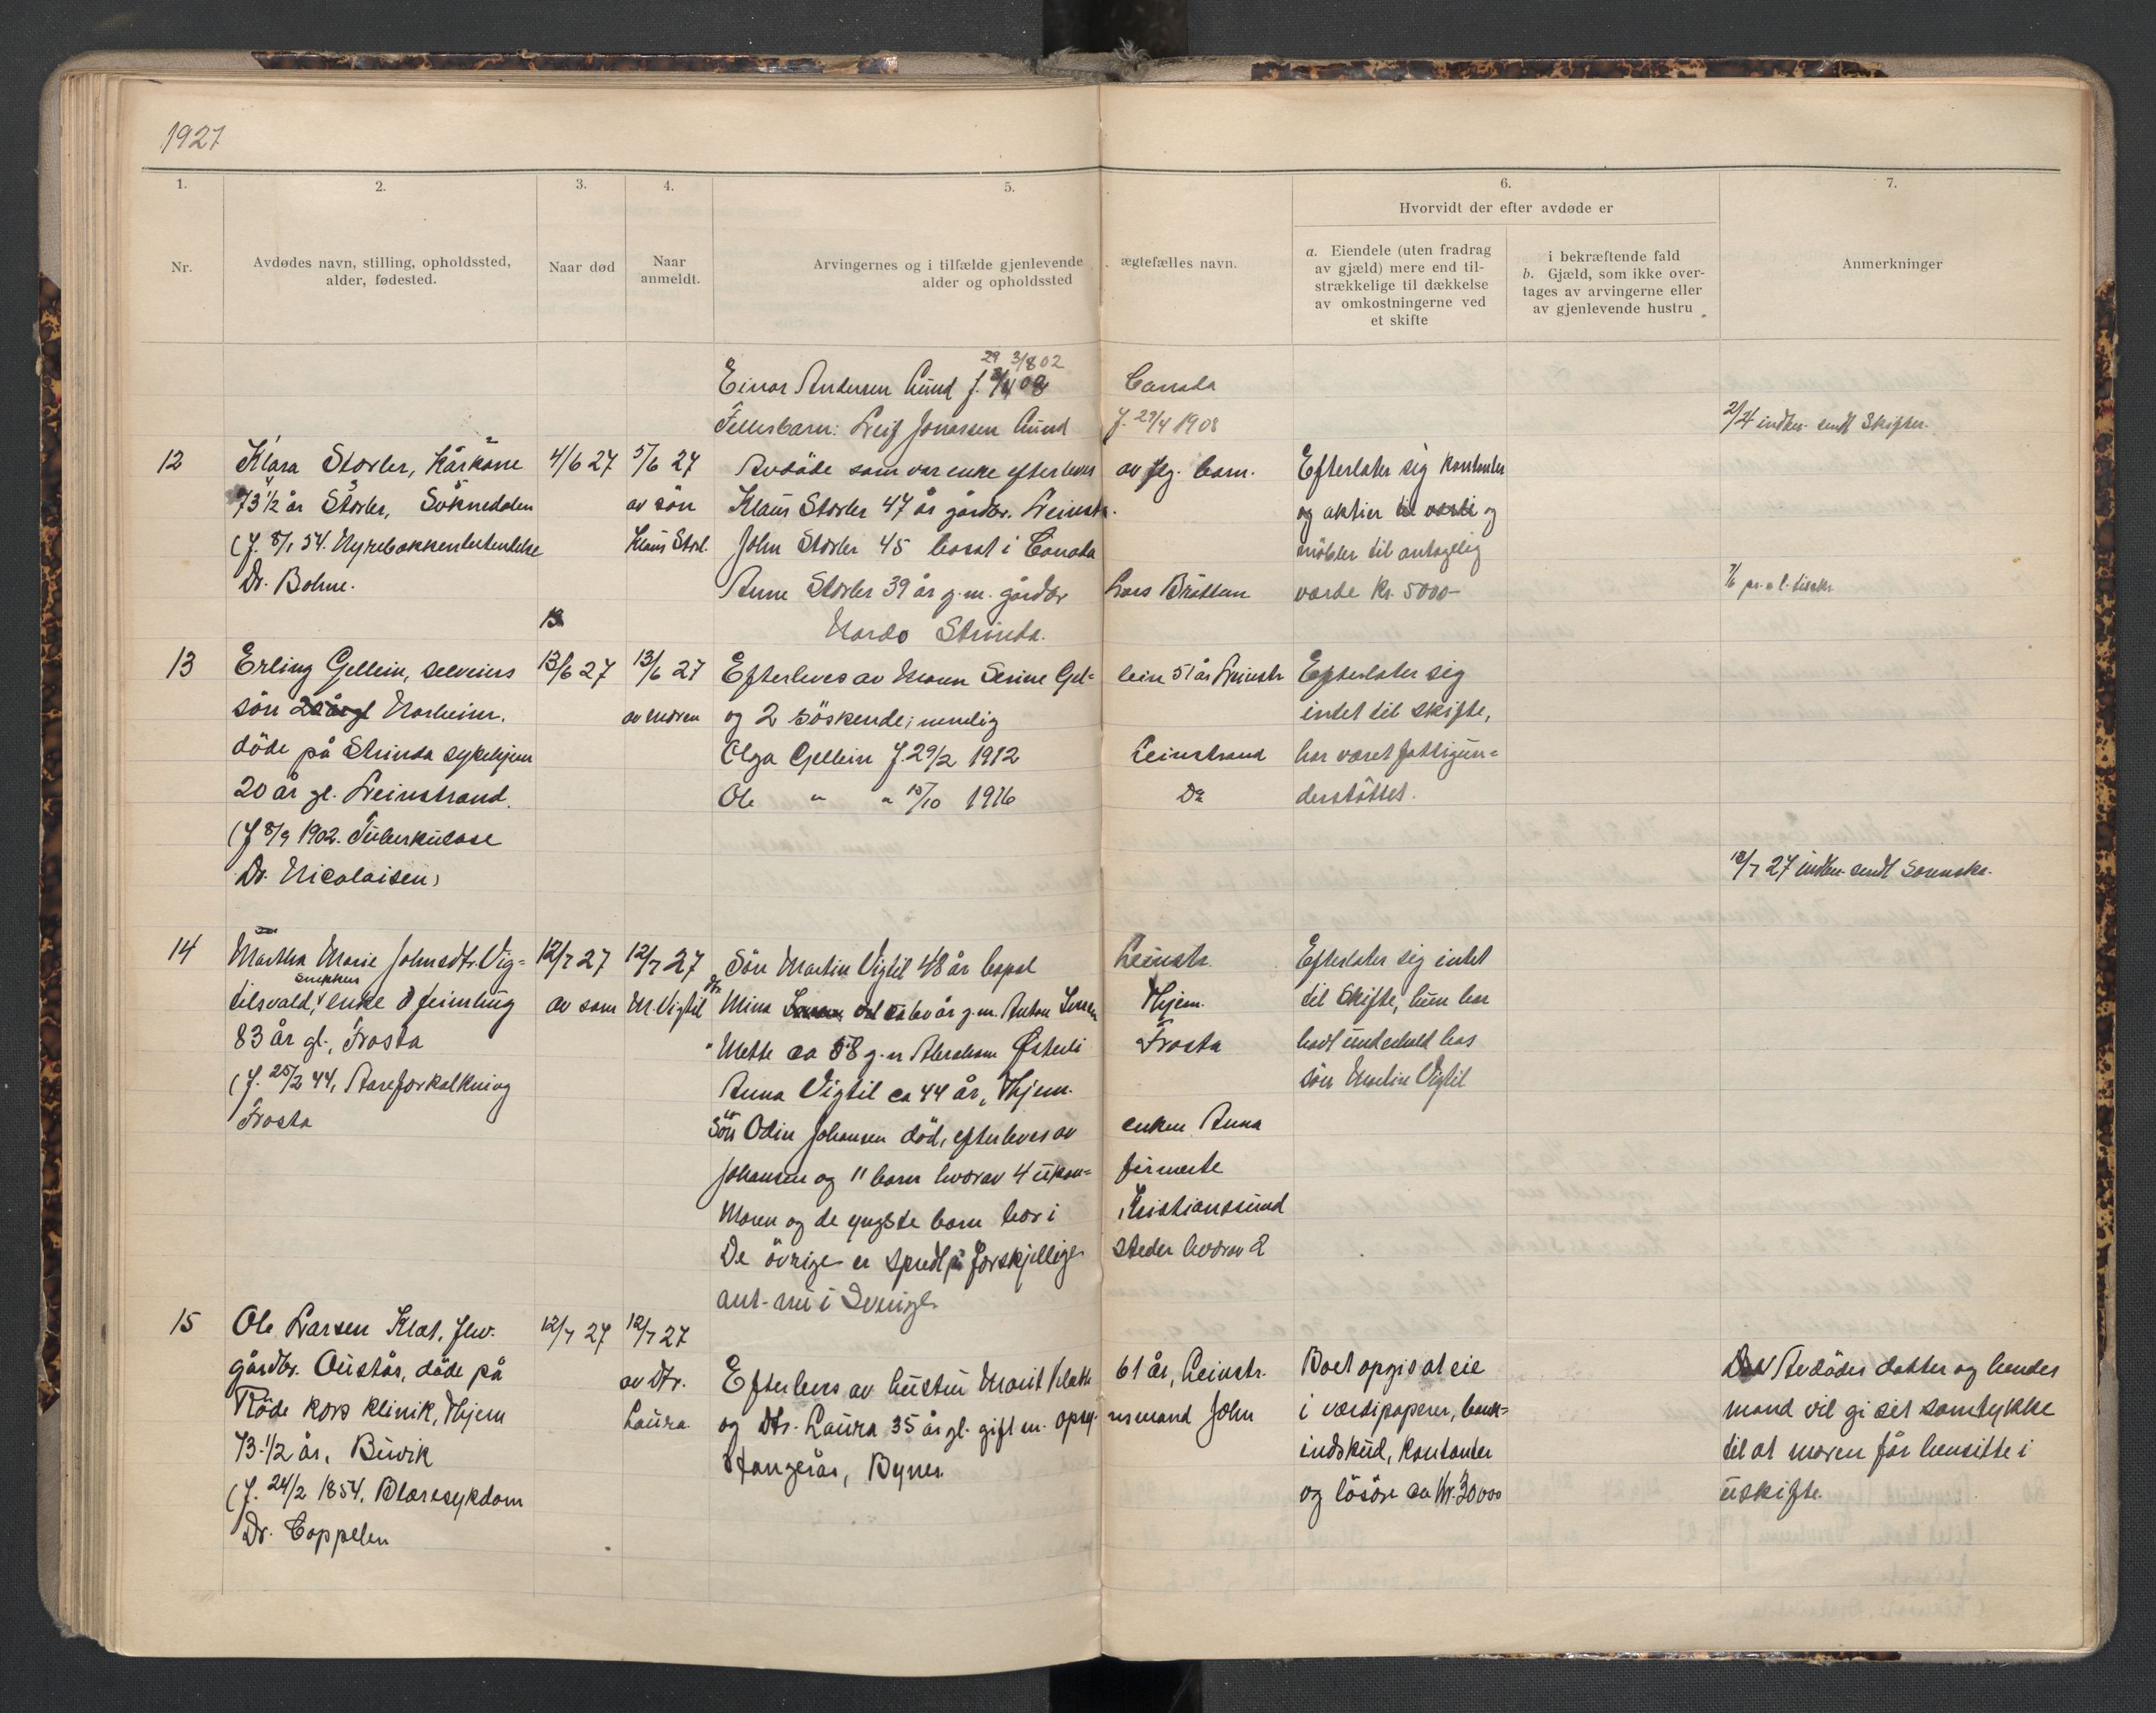 1927
1.
2.
3.
4.
5.
6.
7.
Hvorvidt der efter avdøde er
Nr.
Avdødes navn, stilling, opholdssted,
alder, fødested.
Naar død
Naar
anmeldt.
Arvingernes og i tilfælde gjenlevende ægtefælles navn.
alder og opholdssted
a. Eiendele (uten fradrag
av gjæld) mere end til-
strækkelige til dækkelse
av omkostningerne ved
et skifte
i bekræftende fald
b. Gjæld, som ikke over-
tages av arvingerne eller
av gjenlevende hustru
Anmerkninger
29 3/8 02
Einar Andersen Lund f. Canada
Fellesbarn: Leif Jonassen Lund f. 29/4 1908
2/4 indber. sendt Skifter.
12
Klara Storler, Kårkone
73 1/2 år Storler, Soknedalen
(f. 8/1 54.
Dr. Bohne.
4/6 27
5/6 27
av sön
Klaus Storl.
Avdöde som var enke efterleves av flg. barn.
Klaus Storler 47 år gårdbr. Leinstr.
John Storler 45 bosat i Canada
Anne Storler 39 år g.m. gårdbr Lars Bråttem
Nardo Strinda.
Efterlater sig kontanter
og aktier til verdi og
möbler til antagelig
værde kr. 5000-
13
Erling Gellein, selveiers
sön Norheim.
döde på Strinda sykehjem
20 år gl. Leinstrand.
(f 8/9 1902. Tuberkulose
Dr. Nicolaisen)
13/6 27
13/6 27
av moren
Efterleves av Moren Serine Gel= lein 51 år Leinstr
og 2 söskende; nemlig
Olga Gellein f. 29/2 1912 Leinstrand
Ole " " 15/10 1916 Do
Efterlater sig
intet til skifte,
har været fattigun=
derstöttet.
18/7 27 indber. sendt Sorenskr.
14
Martha Marie Johnsdtr. Vig=
snekker
tilsvald, enke
83 år gl., Frosta
(f. 25/2 44, Aareforkalkning
Frosta
12/7 27
12/7 27
av sönn M. Vigtil
Sön Martin Vigtil 48 år bopel Leinstr.
Mina ca 60 år g.m. Anton Thjem.
" Mette ca 58 g.m Abraham Österli Frosta
Anna Vigtil ca 44 år, Thjem.
Sön Odin Johansen död, efterleves av enken Anna
Johansen og 11 barn hvorav 4 ukon= firmerte
Moren og de yngste barn bor i Kristianssund
De övrige er spredt på forskjellige steder hvorav 2
ant. nu i Sverige
Efterlater sig intet
til Skifte, hun har
havt underhold hos
sön Martin Vigtil
15
Ole Larsen Klæt, fhv.
gårdbr. Oustår, döde på
Röde kors klinik, Thjem
73-1/2 år, Buvik
(f. 24/2 1854. Blæresykdom
Dr. Coppelen
12/7 27
12/7 27
av dtr.
Laura
Efterleves av hustru Marit Klæt 61 år, Leinstr.
og dtr. Laura 35 år gl. gift m. opsy- nsmand John
Stangerås, Bynes.
Boet opgis at eie
i værdipaperer, bank=
indskud, kontanter
og lösöre ca kr. 30000
Avdödes datter og hendes
mand vil gi sit samtykke
til at moren får hensitte i
uskifte.